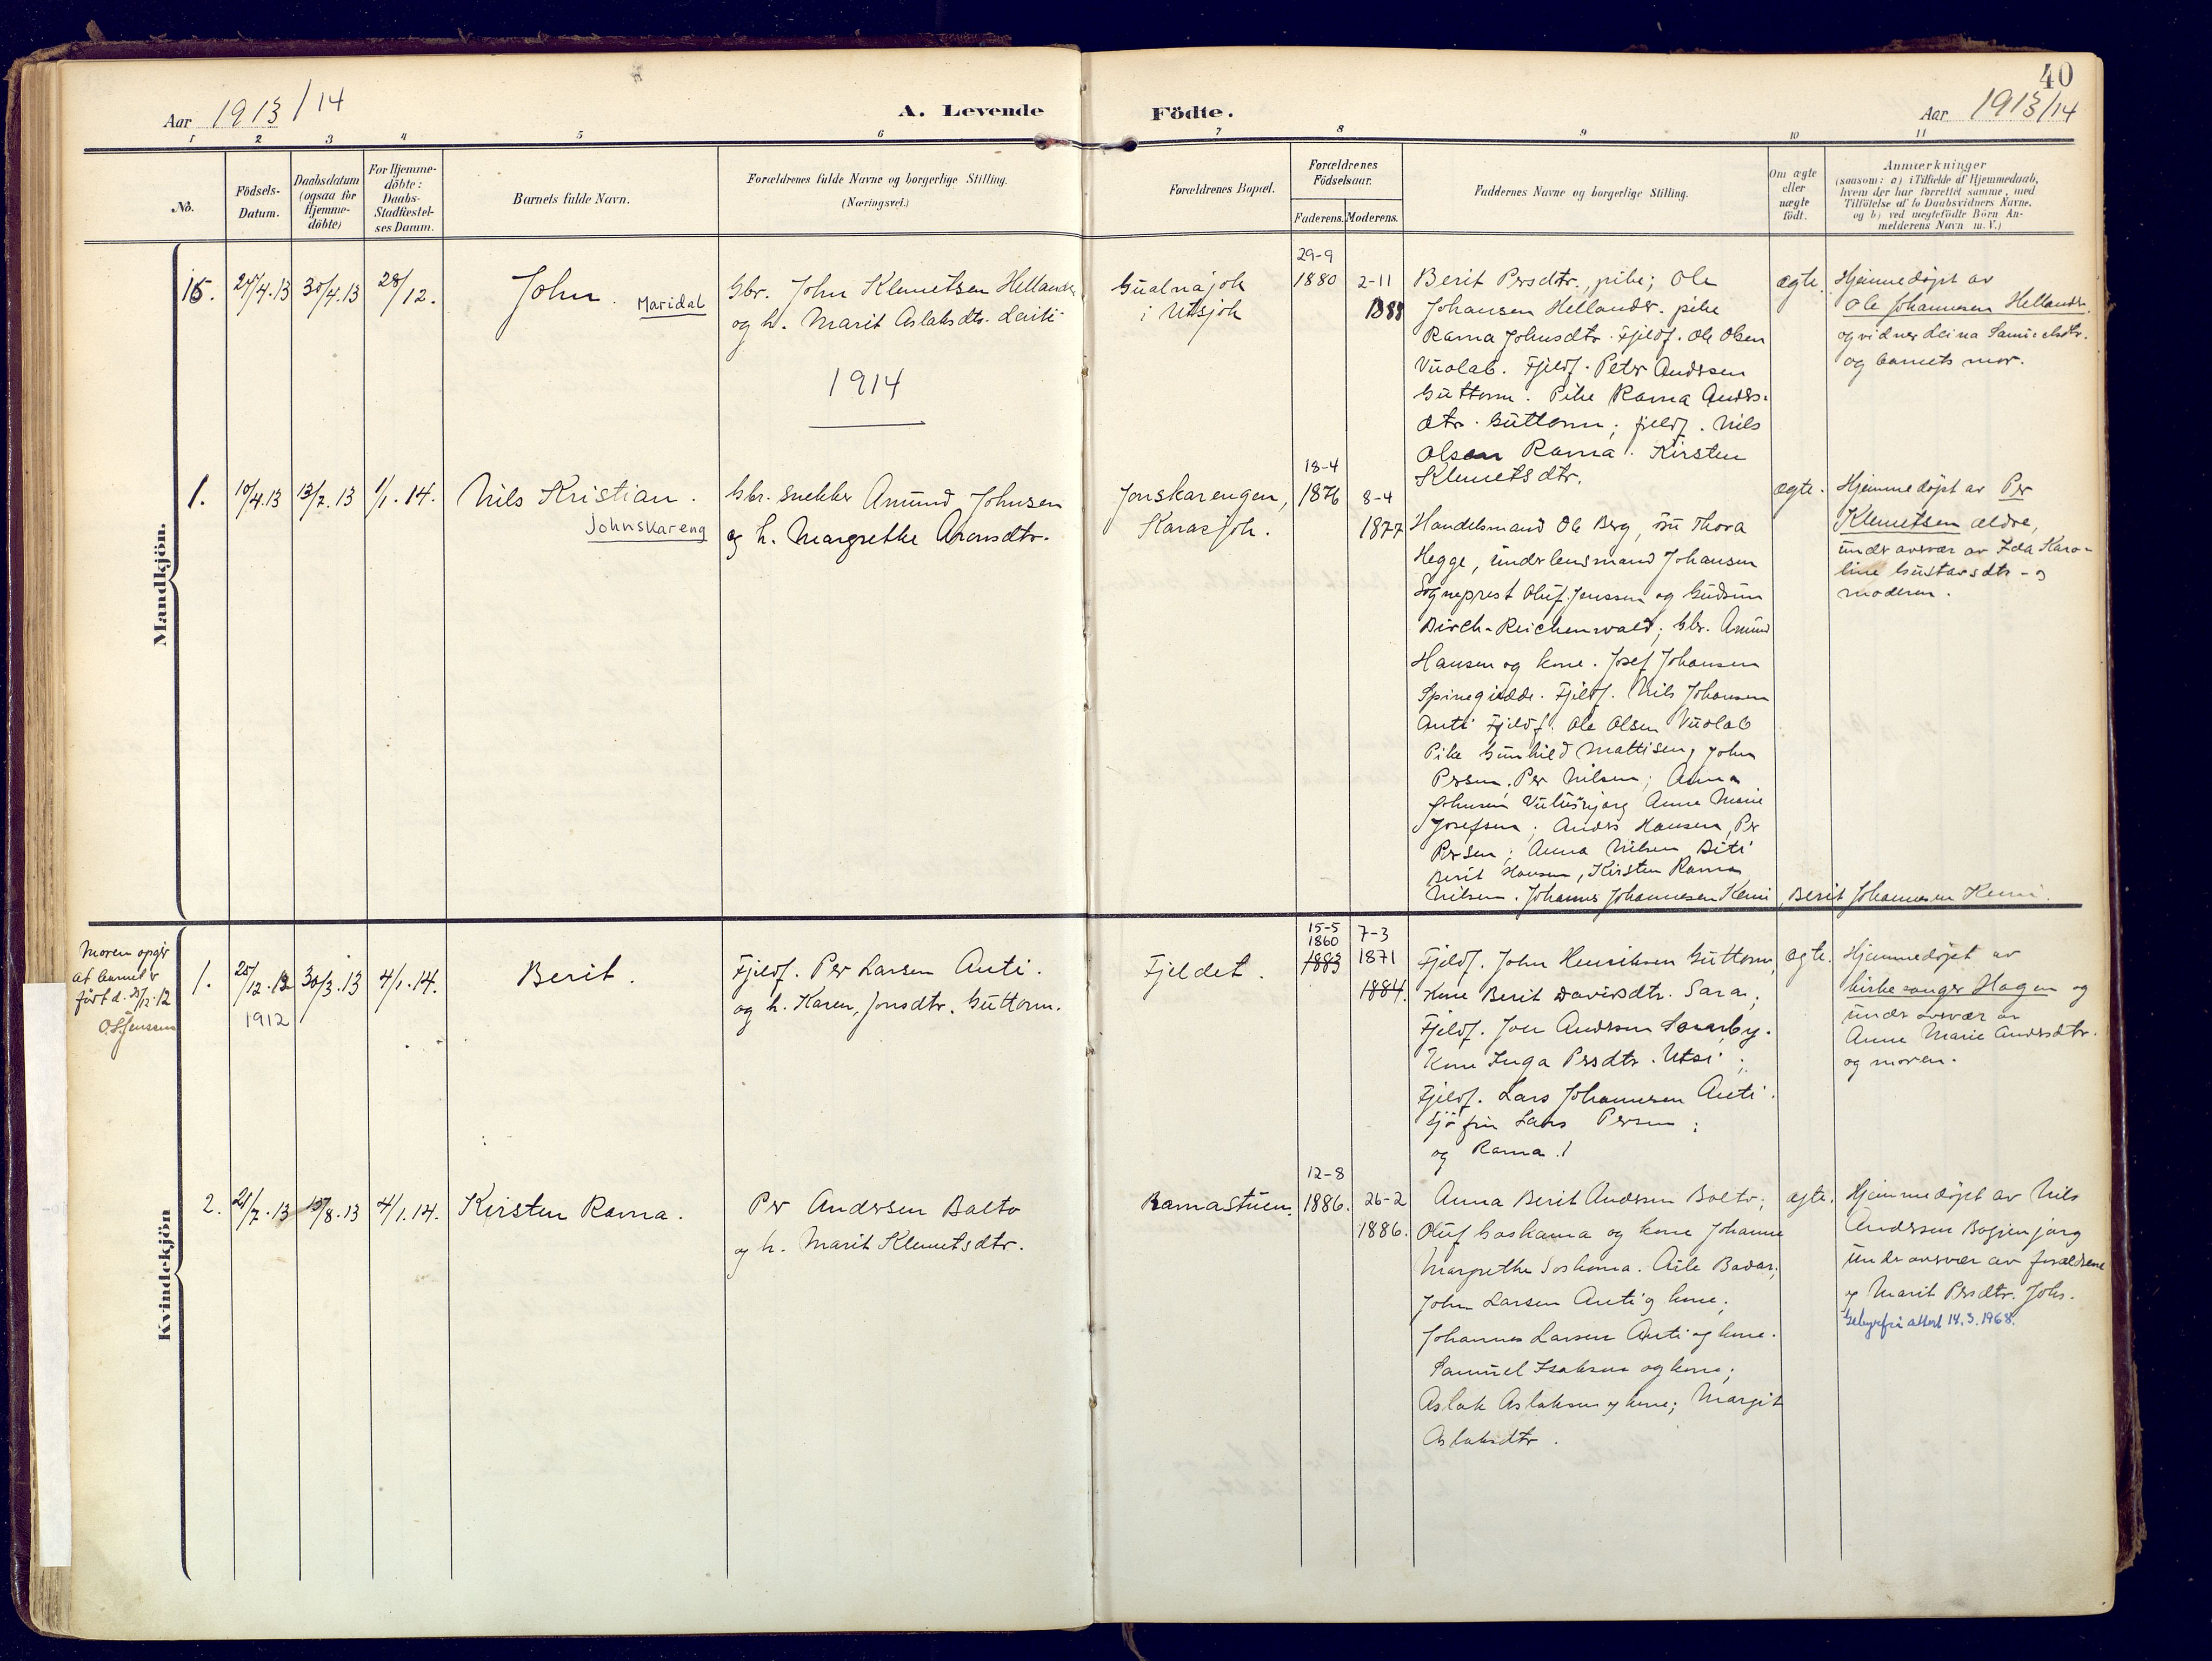 Aar 1913/14
A. Levende
Födte.
40
Aar 1913/14
1 2 3 4 5 6 7 8 9 10 11
No.
Födsels-
Datum.
Daabsdatum
(ogsaa for
Hjemme-
döbte)
For Hjemme-
döbte:
Daabs-
Stadfæstel-
ses Datum.
Barnets fulde Navn.
Forældrenes fulde Navne og borgerlige Stilling.
(Næringsvei.)
Forældrenes Bopæl.
Forældrenes
Födselsaar.
Faderens. Moderens.
Faddernes Navne og borgerlige Stilling.
Om ægte
eller
uægte
födt.
Anmærkninger
(saasom: a) i Tilfælde af Hjemmedaab,
hvem der har forrettet samme, med
Tilföielse af to Daabsvidners Navne.
og b) ved uægtefödte Börn An-
melderens Navn m. V.)
Mandkjön.
15. 24/4.13 30/4.13 28/12.
John.
Maridal
Gbr. John Klemetsen Hellander
og h. Marit Aslaksdtr. Laiti
Gualnajok
i Utsjok
29-9
1880
2-11
1888
Berit Persdtr., pike; Ole
Johansen Hellander. pike
Ravna Johnsdtr. Fjeldf. Ole Olsen
Vuolab. Fjeldf. Peter Andersen
Guttorm. Pike Ravna Anders-
dtr. Guttorm; fjeldf. Nils
Olsen Ravna. Kirsten
Klemetsdtr.
ægte.
Hjemmedøpt av
Ole Johannesen Hellander.
og vidner Samuelsdtr.
og barnets mor.
1914
1. 10/4.13 13/7.13 1/1.14.
Nils Kristian.
Johnskareng
Gbr. snekker Amund Johnsen
og h. Margrethe Aronsdtr.
Jonskarengen,
Karasjok.
18-4
1876
8-4
1877
Handelsmand Ole Berg, fru Thora
Hegge, underlensmand Johansen
Sogneprest Oluf Jenssen og Gudrun
Birch-Reichenwald; Gbr. Amund
Hansen og kone. Josef Johansen
Fjeldf. Nils Johansen
Anti Fjeldf. Ole Olsen Vuolab
Pike Gunhild Mattisen, John
Persen, Per Nilsen; Anna
Johnsen Anna Marie
Josefsen; Anders Hansen, Per
Persen; Anna Nilsen Biti
Berit Hansen, Kirsten Ravna
Nilsen. Johannes Johannesen Kemi, Berit Johannesen Kemi.
ægte.
Hjemmedøpt av Per
Klemetsen ældre,
under overvær av Ida Karo-
line Gustavsdtr - og
moderen.
Kvindekjön
Moren opgir
at barnet er
født d. 25/12.12
O.Jenssen
1. 25/12.12 30/3.13 4/1.14.
1912
Berit.
Fjeldf. Per Larsen Anti.
og h. Karen, Jonsdtr. Guttorm.
Fjeldet.
15-5
1860
1883
7-3
1871
1884.
Fjeldf. John Henriksen Guttorm,
Kone Berit Davidsdtr. Sara;
Fjeldf. Jon Andersen Somby.
Kone Inga Persdtr. Utsi;
Fjeldf. Lars Johannesen Anti.
Sjöfin Lars Persen;
og Ravna.
ægte.
Hjemmedøpt av
kirkesanger Hagen og
under overvær av
Anne Marie Andersdtr.
og moren.
2. 21/7.13 15/8.13 4/1.14.
Kirsten Ravna.
Per Andersen Balto
og h. Marit Klemetsdtr.
Ravnastuen.
12-8
1886.
26-2
1886.
Anna Berit Andersen Balto;
Oluf Soskama og kone Johanne
Margrethe Soskama. Aile
John Larsen Anti og kone;
Johannes Larsen Anti og kone.
Samuel Isaksen og kone;
Aslak Aslaksen og kone; Margit
Aslaksdtr.
ægte.
Hjemmedøpt av Nils
Andersen
under overvær av forældrene
og Marit Persdtr. Johs.
Gebyrfri attest 14.3.1968.